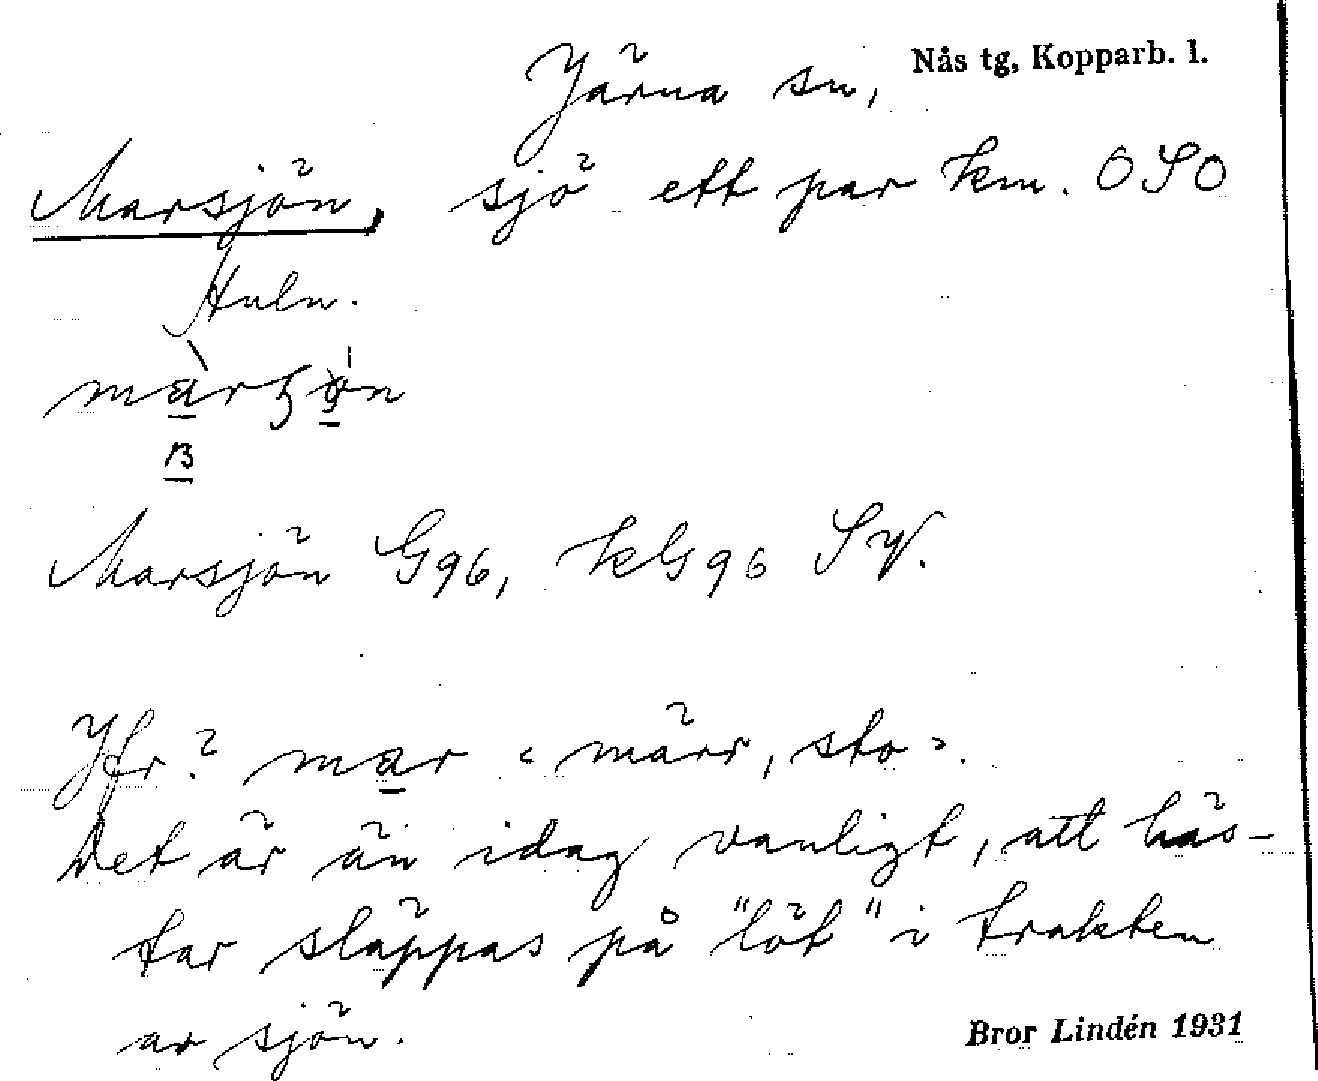 Järna sn, Nås tg, Kopparb. l.
Marsjön, sjö ett par km. OSO
Huln.
Marsjön G96, kG96 SV.
Jfr? mar "märr, sto".
Det är än idag vanligt, att häs-
tar släppas på "löt" i trakten
av sjön.
Bror Lindén 1931